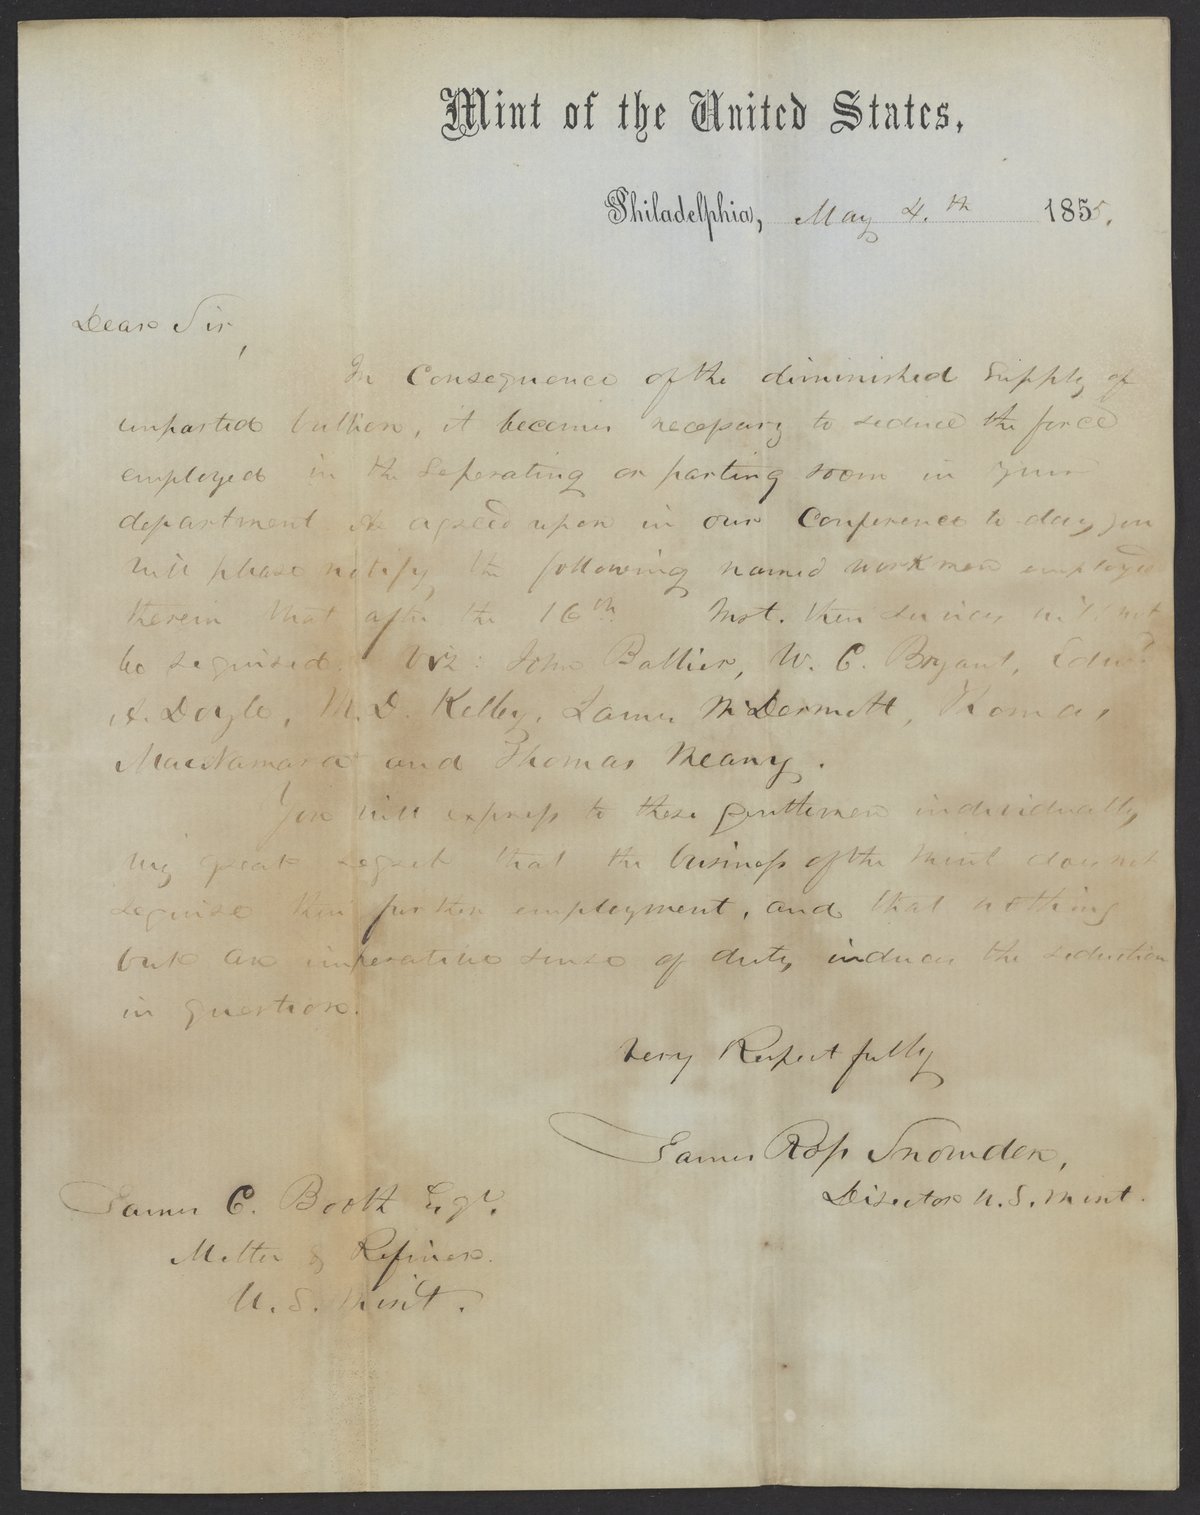 Mint of the United States.
Philadelphia, May 4.th 1855.
Dear Sir,
In Consequence of the diminished Supply of
unparted bullion, it becomes necessary to reduce the force
employed in the Seperating or parting room in your
department. As agreed upon in our Conference to-day, you
will please notify the following named workmen employed
therein that after the 16th Inst. their services will not
be required. Viz: John Ballier, W. C. Bryant, Edwd.
A. Doyle, M. D. Kelley, James McDermott, Thomas
MacNamara and Thomas Meany.
You will express to these gentlemen individually,
my great regret that the business of the Mint does not
require their further employment, and that nothing
but an imperative sense of duty induces the reduction
in question.
Very Respectfully
James Ross Snowden,
Director U. S. Mint.
James C. Booth Esqr.
Melter & Refiner.
U. S. Mint.